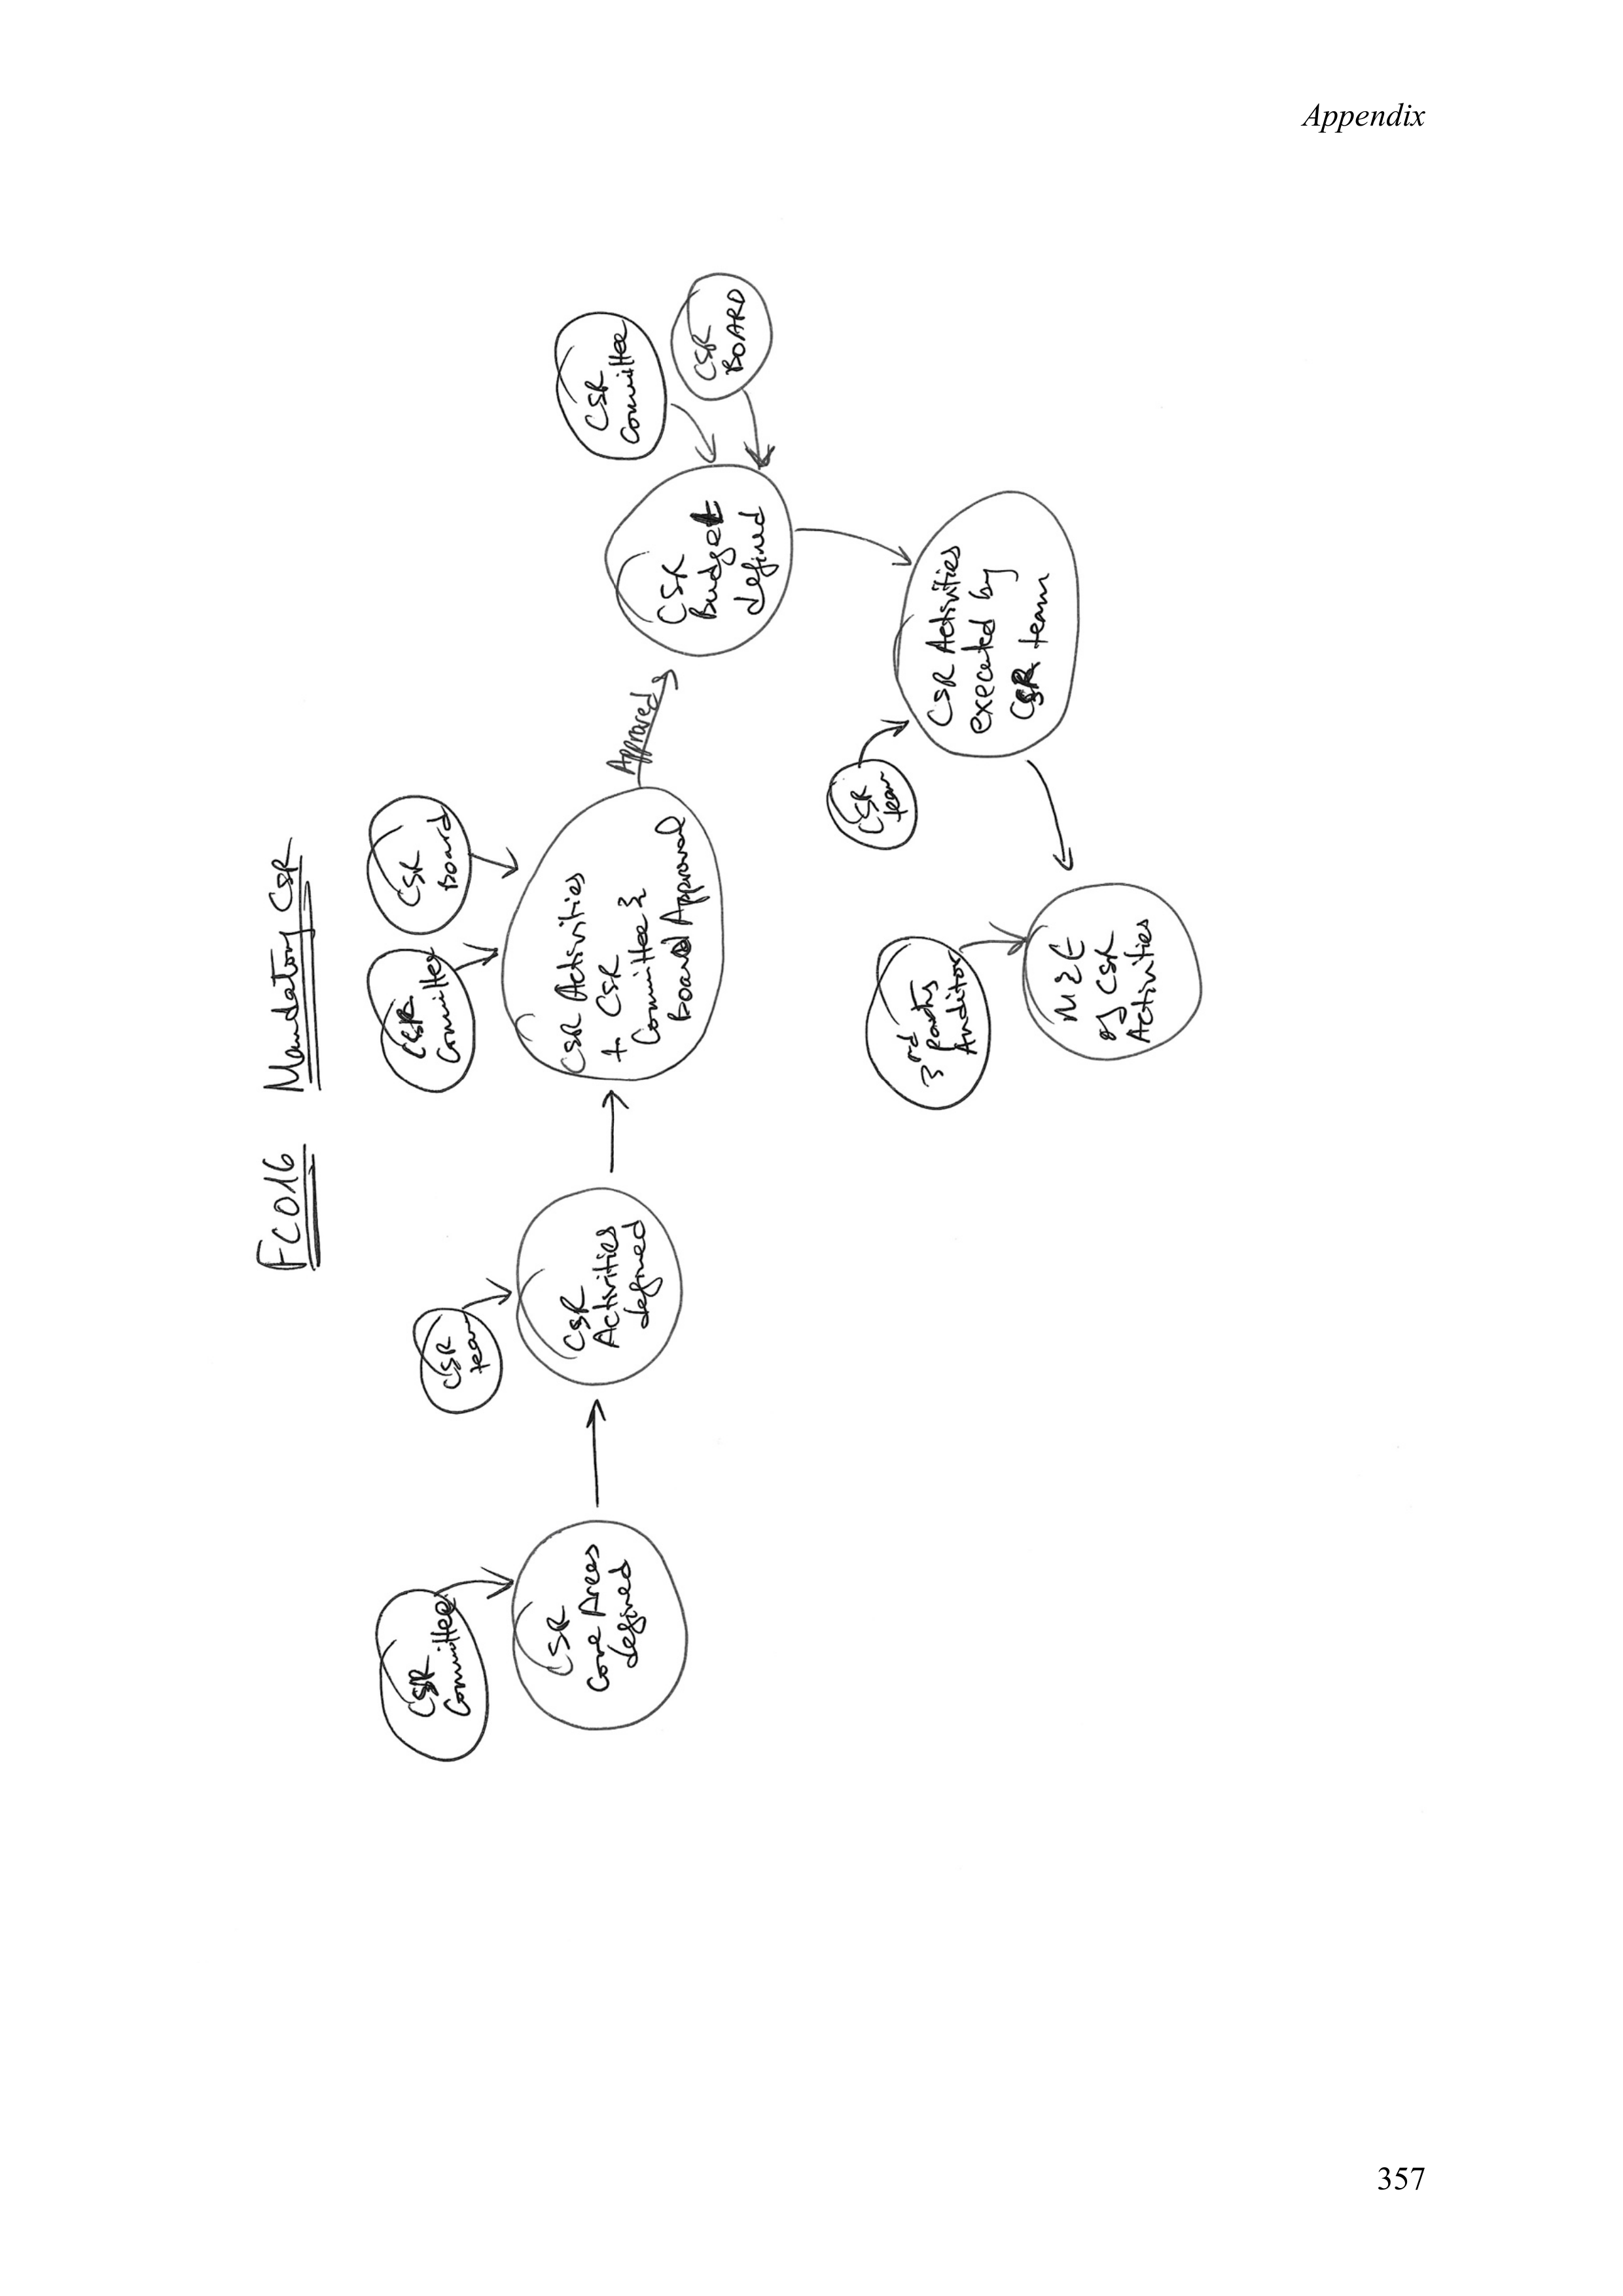 Appendix
FC016 Mandatory CSR
CSR
Committee
CSR
Core Areas
defined
CSR
team
CSR
Activities
defined
CSR
Committee
CSR
Board
CSR Activities
+ CSR
Committee &
Board Approval
Approved
CSR
Committee
CSR
BOARD
CSR
Budget
defined
CSR
team
CSR Activities
executed by
CSR team
3rd Party
Auditor
M & E
of CSR
Activities
357